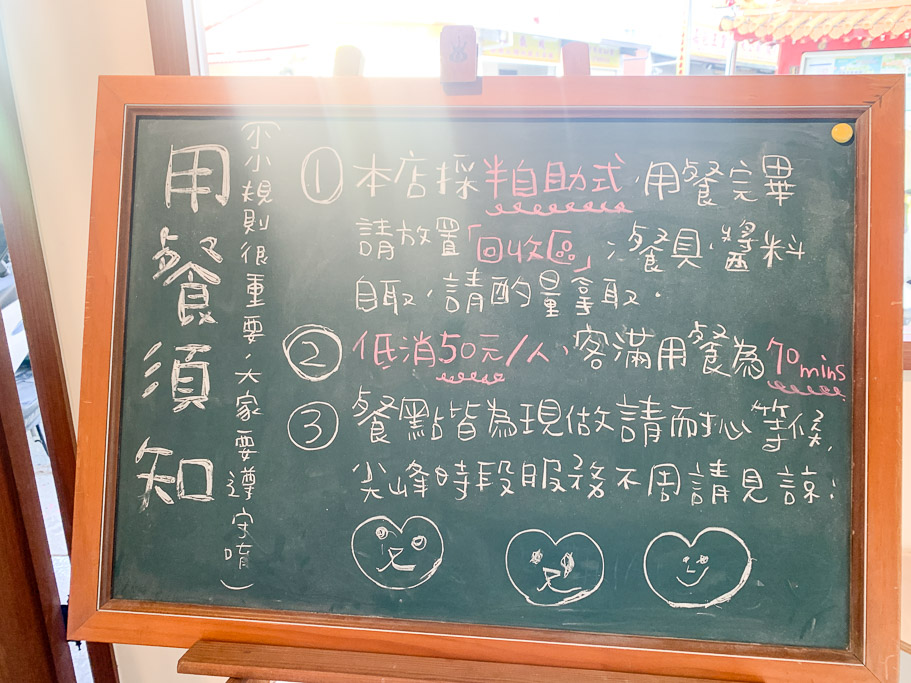 用餐須知
(小小規則很重要、大家要遵守唷)
① 本店採半自助式、用餐完畢
請放置「回收區」;餐具、醬料
自取、請酌量拿取.
② 低消50元/人、客滿用餐為70mins
③ 餐點皆為現做請耐心等候,
尖峰時段服務不周請見諒: